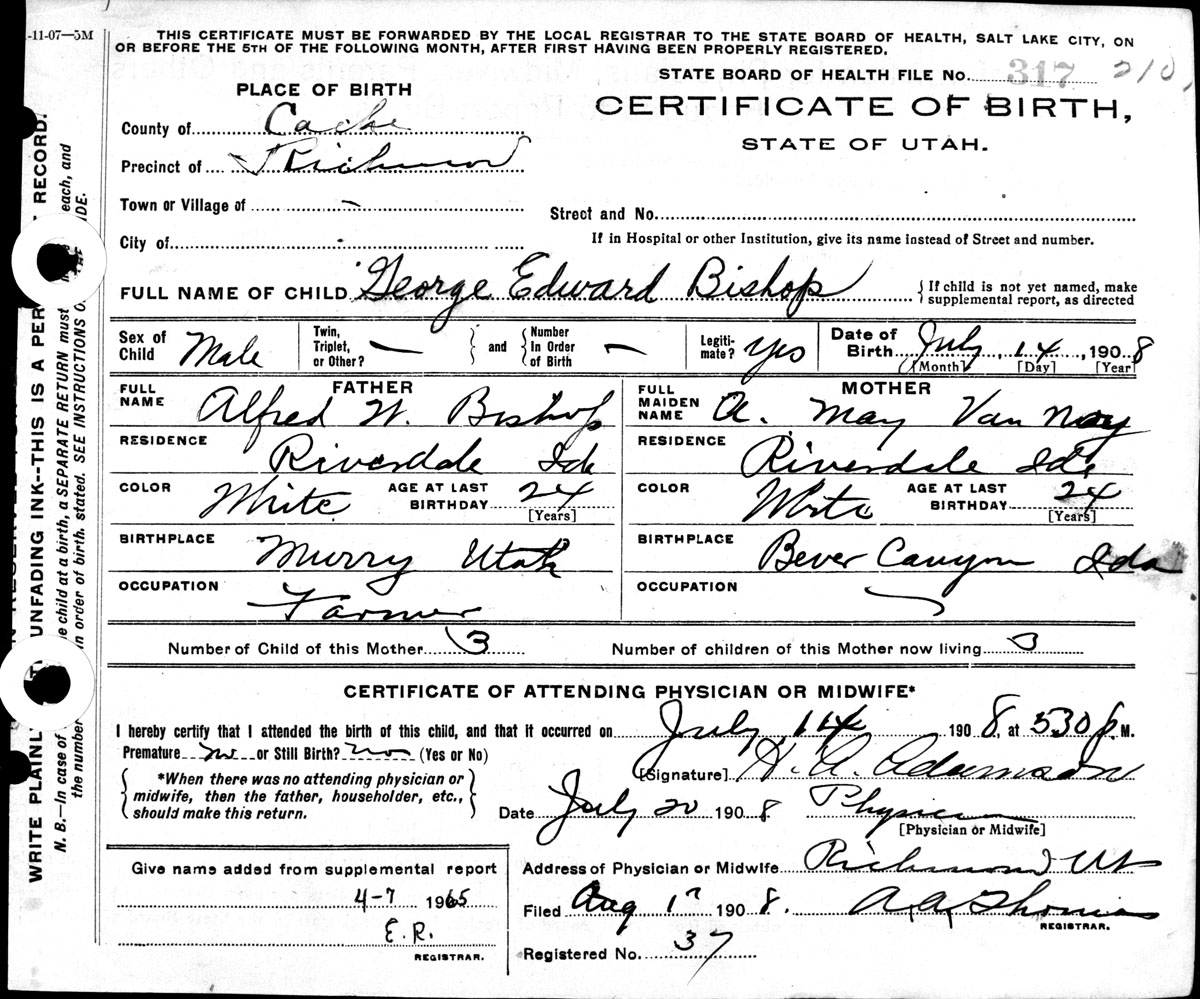 -11-07—5M
THIS CERTIFICATE MUST BE FORWARDED BY THE LOCAL REGISTRAR TO THE STATE BOARD OF HEALTH, SALT LAKE CITY, ON
OR BEFORE THE 5TH OF THE FOLLOWING MONTH, AFTER FIRST HAVING BEEN PROPERLY REGISTERED.
STATE BOARD OF HEALTH FILE No. 317 210
PLACE OF BIRTH
CERTIFICATE OF BIRTH,
STATE OF UTAH.
County of Cache
Precinct of Richmond
Town or Village of -
Street and No.
City of -
If in Hospital or other Institution, give its name instead of Street and number.
FULL NAME OF CHILD George Edward Bishop { If child is not yet named, make supplemental report, as directed
Sex of Child Male Twin, Triplet, or Other? — } and { Number In Order of Birth — Legiti-mate? yes Date of Birth July, 14, 1908
[Month] [Day] [Year]
FATHER MOTHER
FULL NAME Alfred W. Bishop FULL MAIDEN NAME A. May Van Noy
RESIDENCE Riverdale Ida RESIDENCE Riverdale Ida
COLOR White AGE AT LAST BIRTHDAY 24 [Years] COLOR White AGE AT LAST BIRTHDAY 24 [Years]
BIRTHPLACE Murry Utah BIRTHPLACE Bever Canyon Ida
OCCUPATION Farmer OCCUPATION
Number of Child of this Mother 3 Number of children of this Mother now living 3
CERTIFICATE OF ATTENDING PHYSICIAN OR MIDWIFE*
I hereby certify that I attended the birth of this child, and that it occurred on July, 14 1908, at 530 p.M.
Premature no or Still Birth? no (Yes or No)
[Signature] H. A. Adamson
{ *When there was no attending physician or midwife, then the father, householder, etc., should make this return. }
Date July 20 1908 Physician
[Physician or Midwife]
Address of Physician or Midwife Richmond Ut
Give name added from supplemental report
4-7 1965
E.R.
REGISTRAR.
Filed Aug 1 1908. A. A. Thomas
REGISTRAR.
Registered No. 37
WRITE PLAINL UNFADING INK--THIS IS A PER RECORD.
N. B.—In case of e child at a birth, a SEPARATE RETURN must each, and
the number in order of birth, stated. SEE INSTRUCTIONS O IDE.